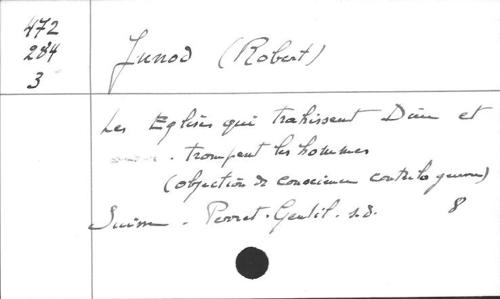 472
284
3
Junod (Robert)
Les Eglises qui trahissent Dieu et
trompent les hommes
(objection de conscience contre la guerre)
Suisse. Perret-Gentil. s.d. 8